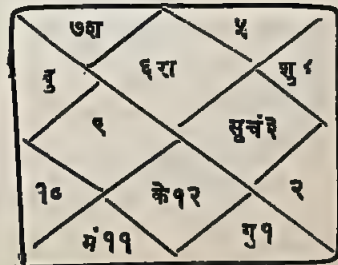 ७श ५
बु ६रा शु४
९ सूचं३
१० के१२ २
मं११ गु१